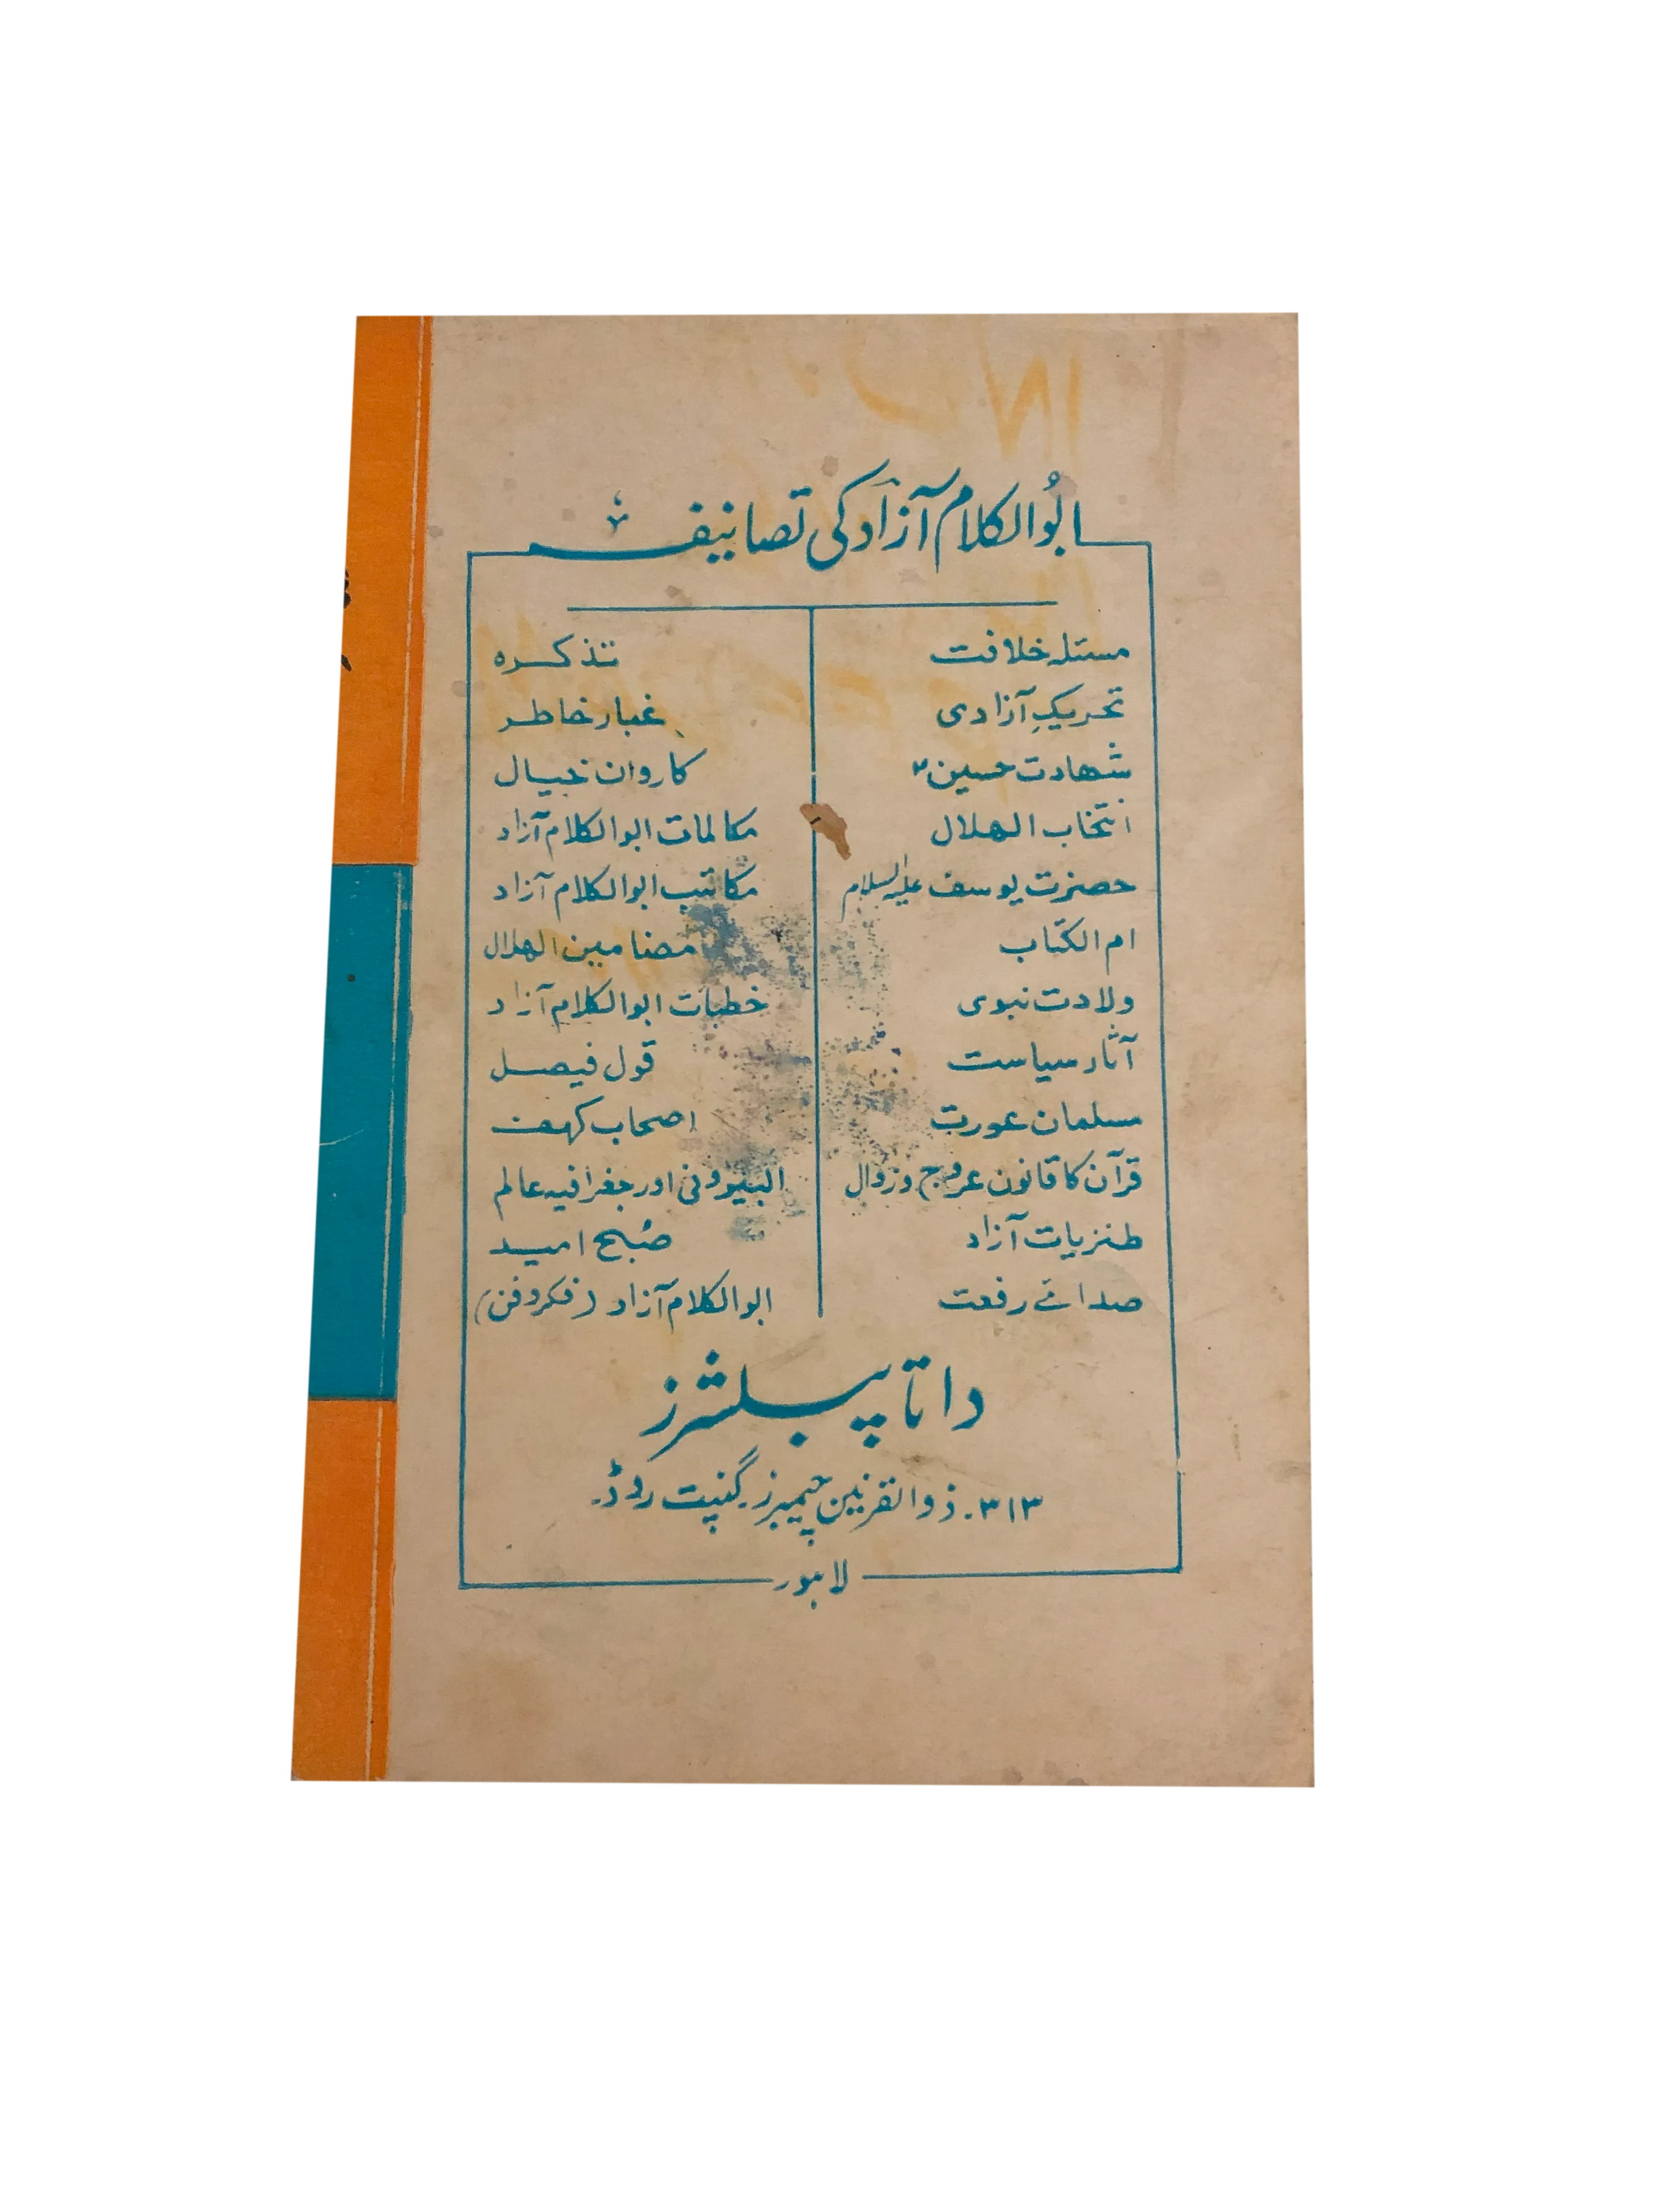 ابُوالکلام آزاد کی تصانیف
مسئلہ خلافت
تحریکِ آزادی
شہادت حسینؓ
انتخاب الہلال
حضرت یوسف علیہ السلام
ام الکتاب
ولادت نبوی
آثار سیاست
مسلمان عورت
قرآن کا قانون عروج و زوال
طنزیات آزاد
صدائے رفعت
تذکرہ
غبار خاطر
کاروان خیال
مکالمات ابوالکلام آزاد
مکاتیب ابوالکلام آزاد
مضامین الہلال
خطبات ابوالکلام آزاد
قول فیصل
اصحاب کہف
البیرونی اور جغرافیہ عالم
صُبح امید
ابوالکلام آزاد (فکروفن)
داتا پبلشرز
۳۱۳۔ ذوالقرنین چیمبرز۔ گنپت روڈ۔
لاہور